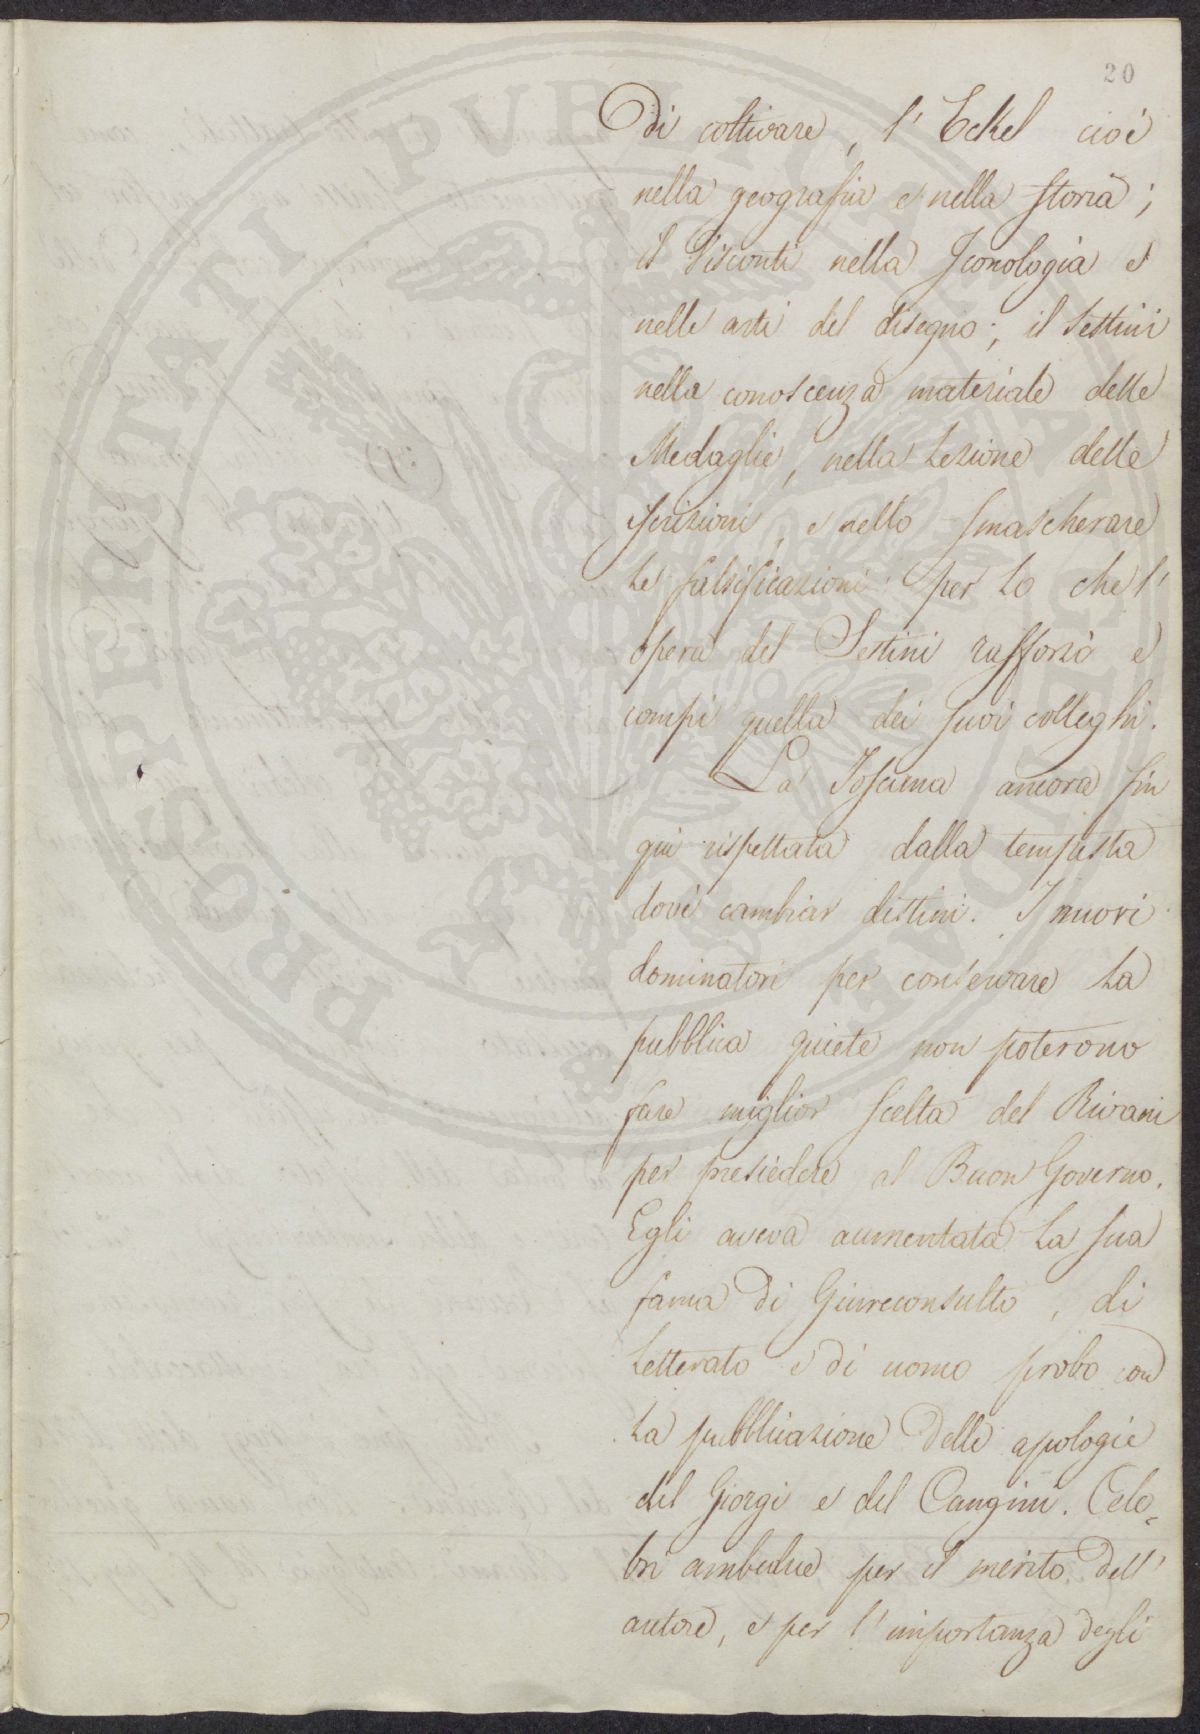 20
Di coltivare, l'Eckel cioè
nella geografia e nella storia;
il Visconti nella Iconologia e
nelle arti del disegno; il Sestini
nella conoscenza materiale delle
Medaglie, nella Lezione delle
iscrizioni, e nello smascherare
le falsificazioni: per lo che l'
opera del Sestini rafforzò e
compì quella dei suoi colleghi.
La Toscana ancora fin
qui rispettata dalla tempesta
dovè cambiar destini. I nuovi
dominatori per conservare la
pubblica quiete non poterono
fare miglior scelta del Rivani
per presiedere al Buon Governo.
Egli aveva aumentata la sua
fama di Giureconsulto, di
Letterato e di uomo probo con
la pubblicazione delle apologie
del Giorgi e del Cangini. Cele-
bri ambedue per il merito dell'
autore, e per l'importanza degli
PROSPERITATI PVBLICAE